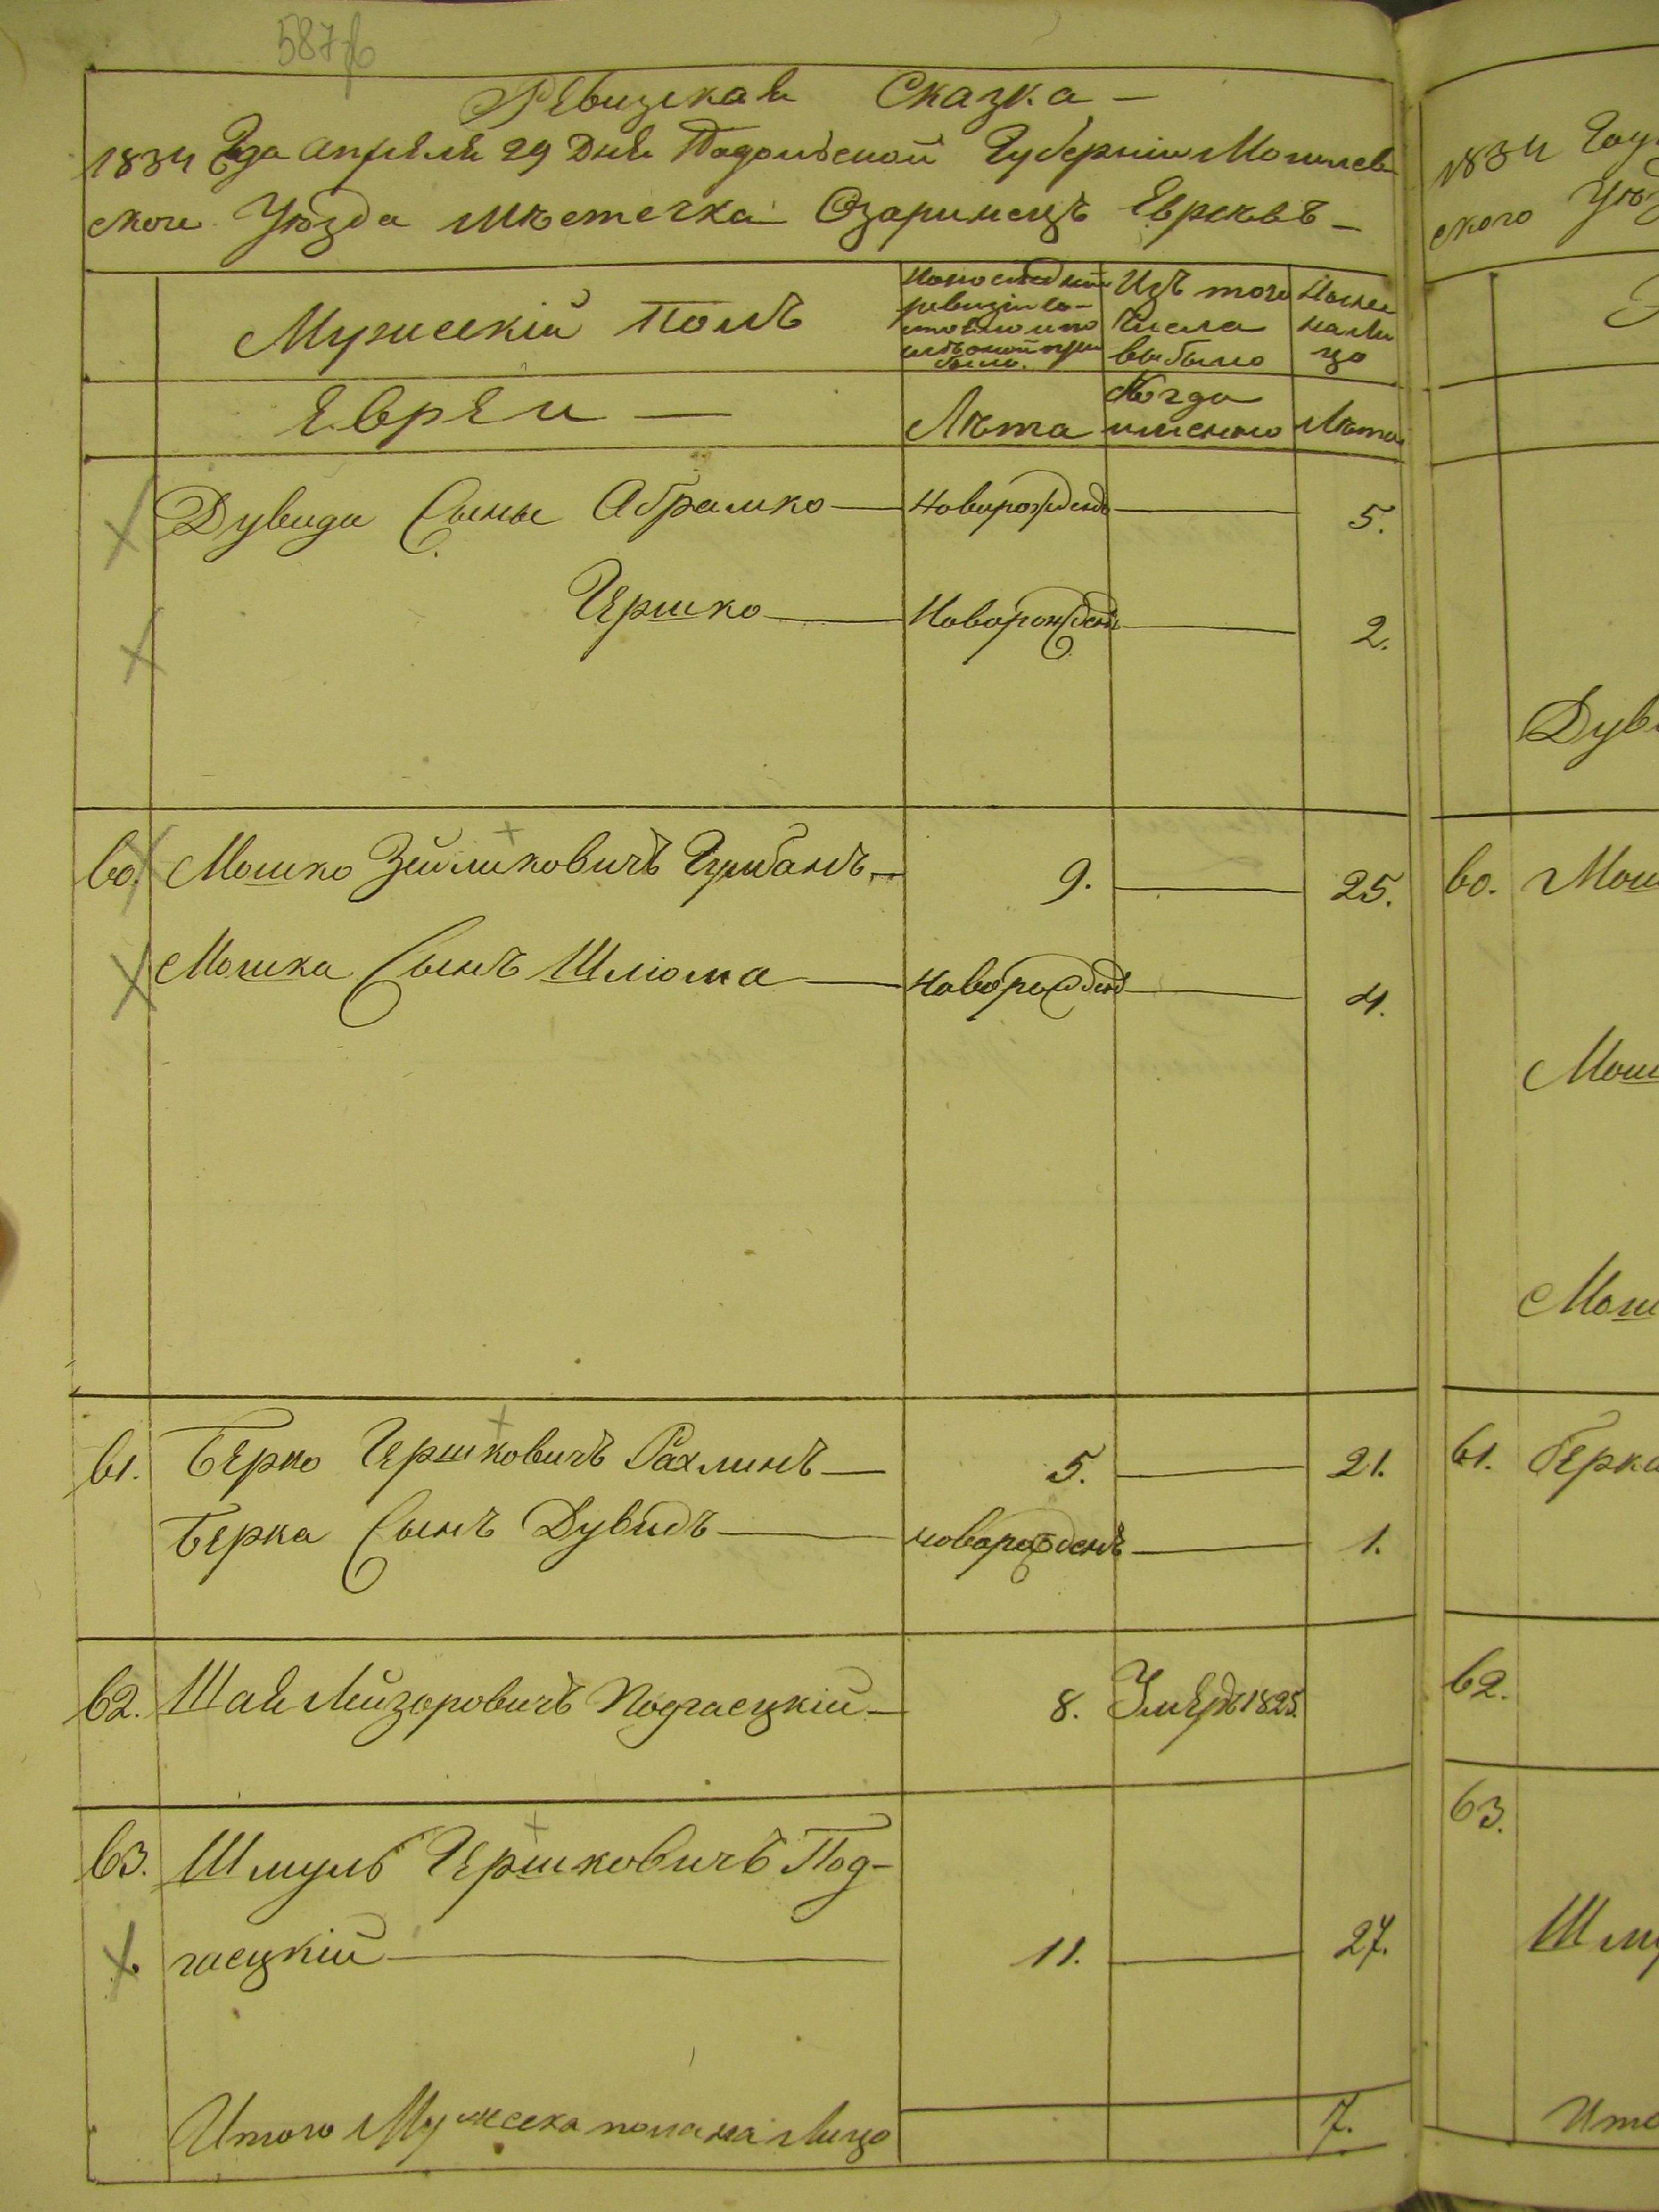 587
Ревизская Сказка —
1834 Года апреля 29 Дня Подольской Губернии Могилев
ского Уѣзда мѣстечка Озаринецъ Евреевъ —
Мужескій Полъ
По последней ревизіи состояло и после оной прибыло.
Изъ того числа выбыло
Ныне на лицо
Евреи —
Лѣта
Когда именно
Лѣта
Дувида Сыны Абрамко — новорожденъ — 5.
Гершко — Новорожденъ — 2.
60. Мошко Зейликовичъ Гурбанъ — 9. — 25.
Мошка Сынъ Шлiома — новорожденъ — 4.
61. Берко Гершковичъ Рахлинъ — 5. — 21.
Берка Сынъ Дувидъ — новорожденъ — 1.
62. Шая Лейзоровичъ Подгаецкій — 8. Умеръ 1825.
63. Шмуль Гершковичъ Под-
гаецкій — 11. — 27.
Итого Мужеска пола на лицо 7.
1834 Году
ского Уѣз
Дув
60. Мош
Мош
Мош
61. Берка
62.
63.
Шму
Ито